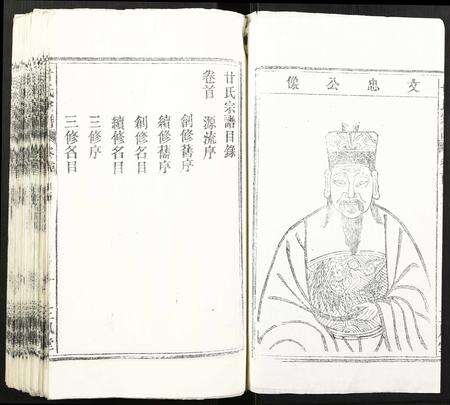 文忠公像
甘氏宗譜目錄
卷首 源流序
創修舊序
續修舊序
創修名目
續修名目
三修序
三修名目